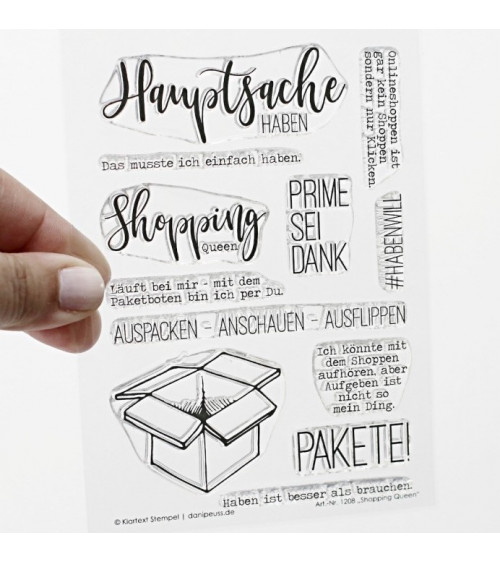 Hauptsache
HABEN
Onlineshoppen ist
gar kein Shoppen
sondern nur Klicken.
Das musste ich einfach haben.
Shopping
Queen
PRIME
SEI
DANK
#HABENWILL
Läuft bei mir - mit dem
Paketboten bin ich per Du.
AUSPACKEN - ANSCHAUEN - AUSFLIPPEN
Ich könnte mit
dem Shoppen
aufhören, aber
Aufgeben ist
nicht so
mein Ding.
PAKETE!
Haben ist besser als brauchen.
© Klartext Stempel | danipeuss.de
Art.-Nr. 1208 „Shopping Queen"